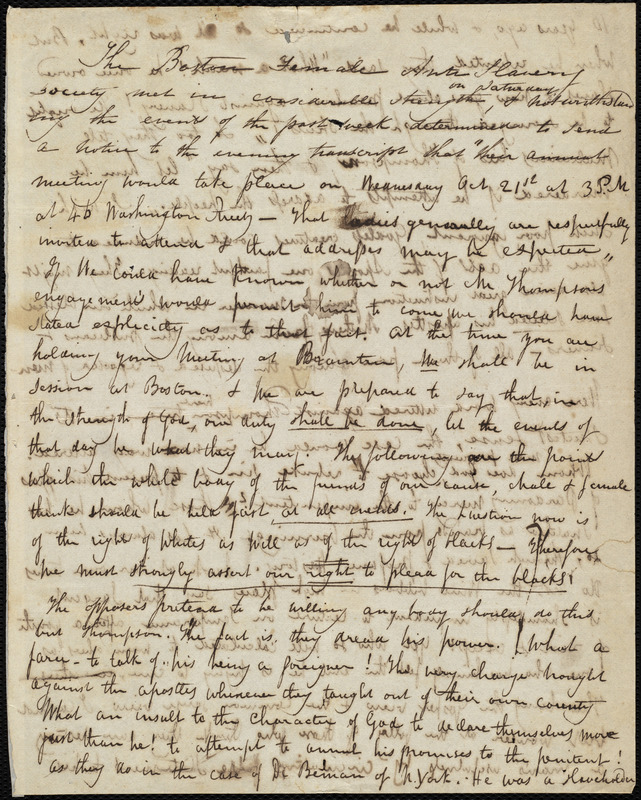 The Boston Female Anti Slavery
on Saturday
society met in considerable strength & notwithstand
ing the events of the past week determined to send
a notice to the evening transcript that "their annual
meeting would take place on Wednesday Oct 21st at 3 P.M
at 46 Washington Street — that ladies generally are respectfully
invited to attend & that addresses may be expected"
If We could have known whether or not Mr Thompson's
engagements would permit him to come we should have
stated explicitly as to that fact. At the time you are
holding your Meeting at Braintree, We shall be in
session at Boston. & We are prepared to say that in
the strength of God, our duty shall be done, let the events of
that day be what they may. The following are the points
which the whole body of the friends of our cause, male & female
think should be held fast at all events. The question now is
of the right of Whites as well as of the right of blacks — Therefore
we must strongly assert our right to plead for the blacks!
The opposers pretend to be willing any body should do this
but Thompson. The fact is they dread his power. What a
farce — to talk of his being a foreigner! The very charge brought
against the apostles whenever they taught out of their own country
What an insult to the character of God to declare themselves more
just than he! to attempt to annul his promises to the penitent!
as they do in the case of Dr Beman of N. York. He was a slaveholder